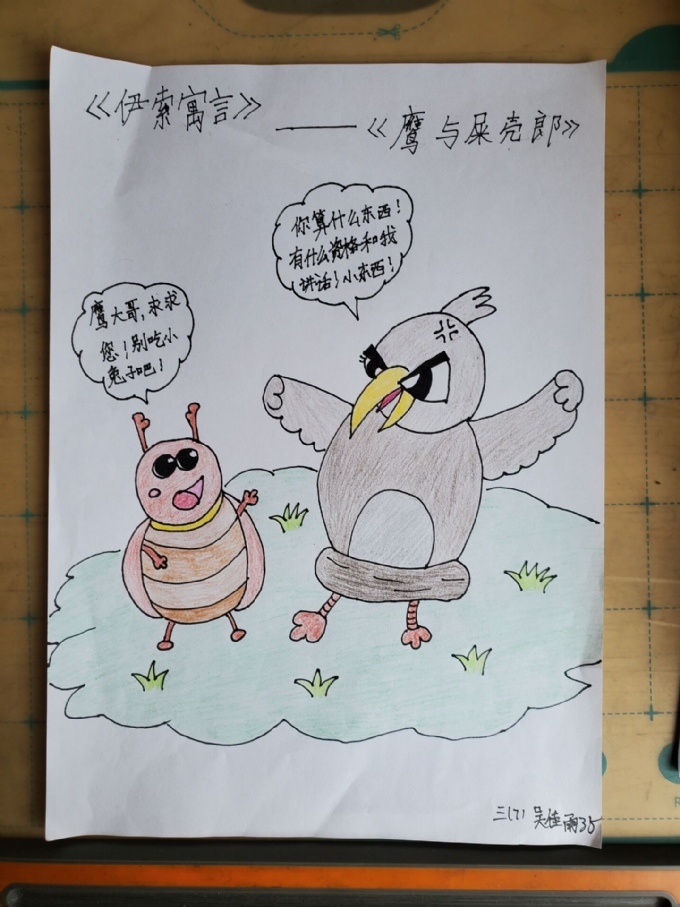 《伊索寓言》
——《鹰与屎壳郎》
你算什么东西！
有什么资格和我
讲话！小东西！
鹰大哥,求求
您！别吃小
兔子吧！
三(7) 吴佳雨35